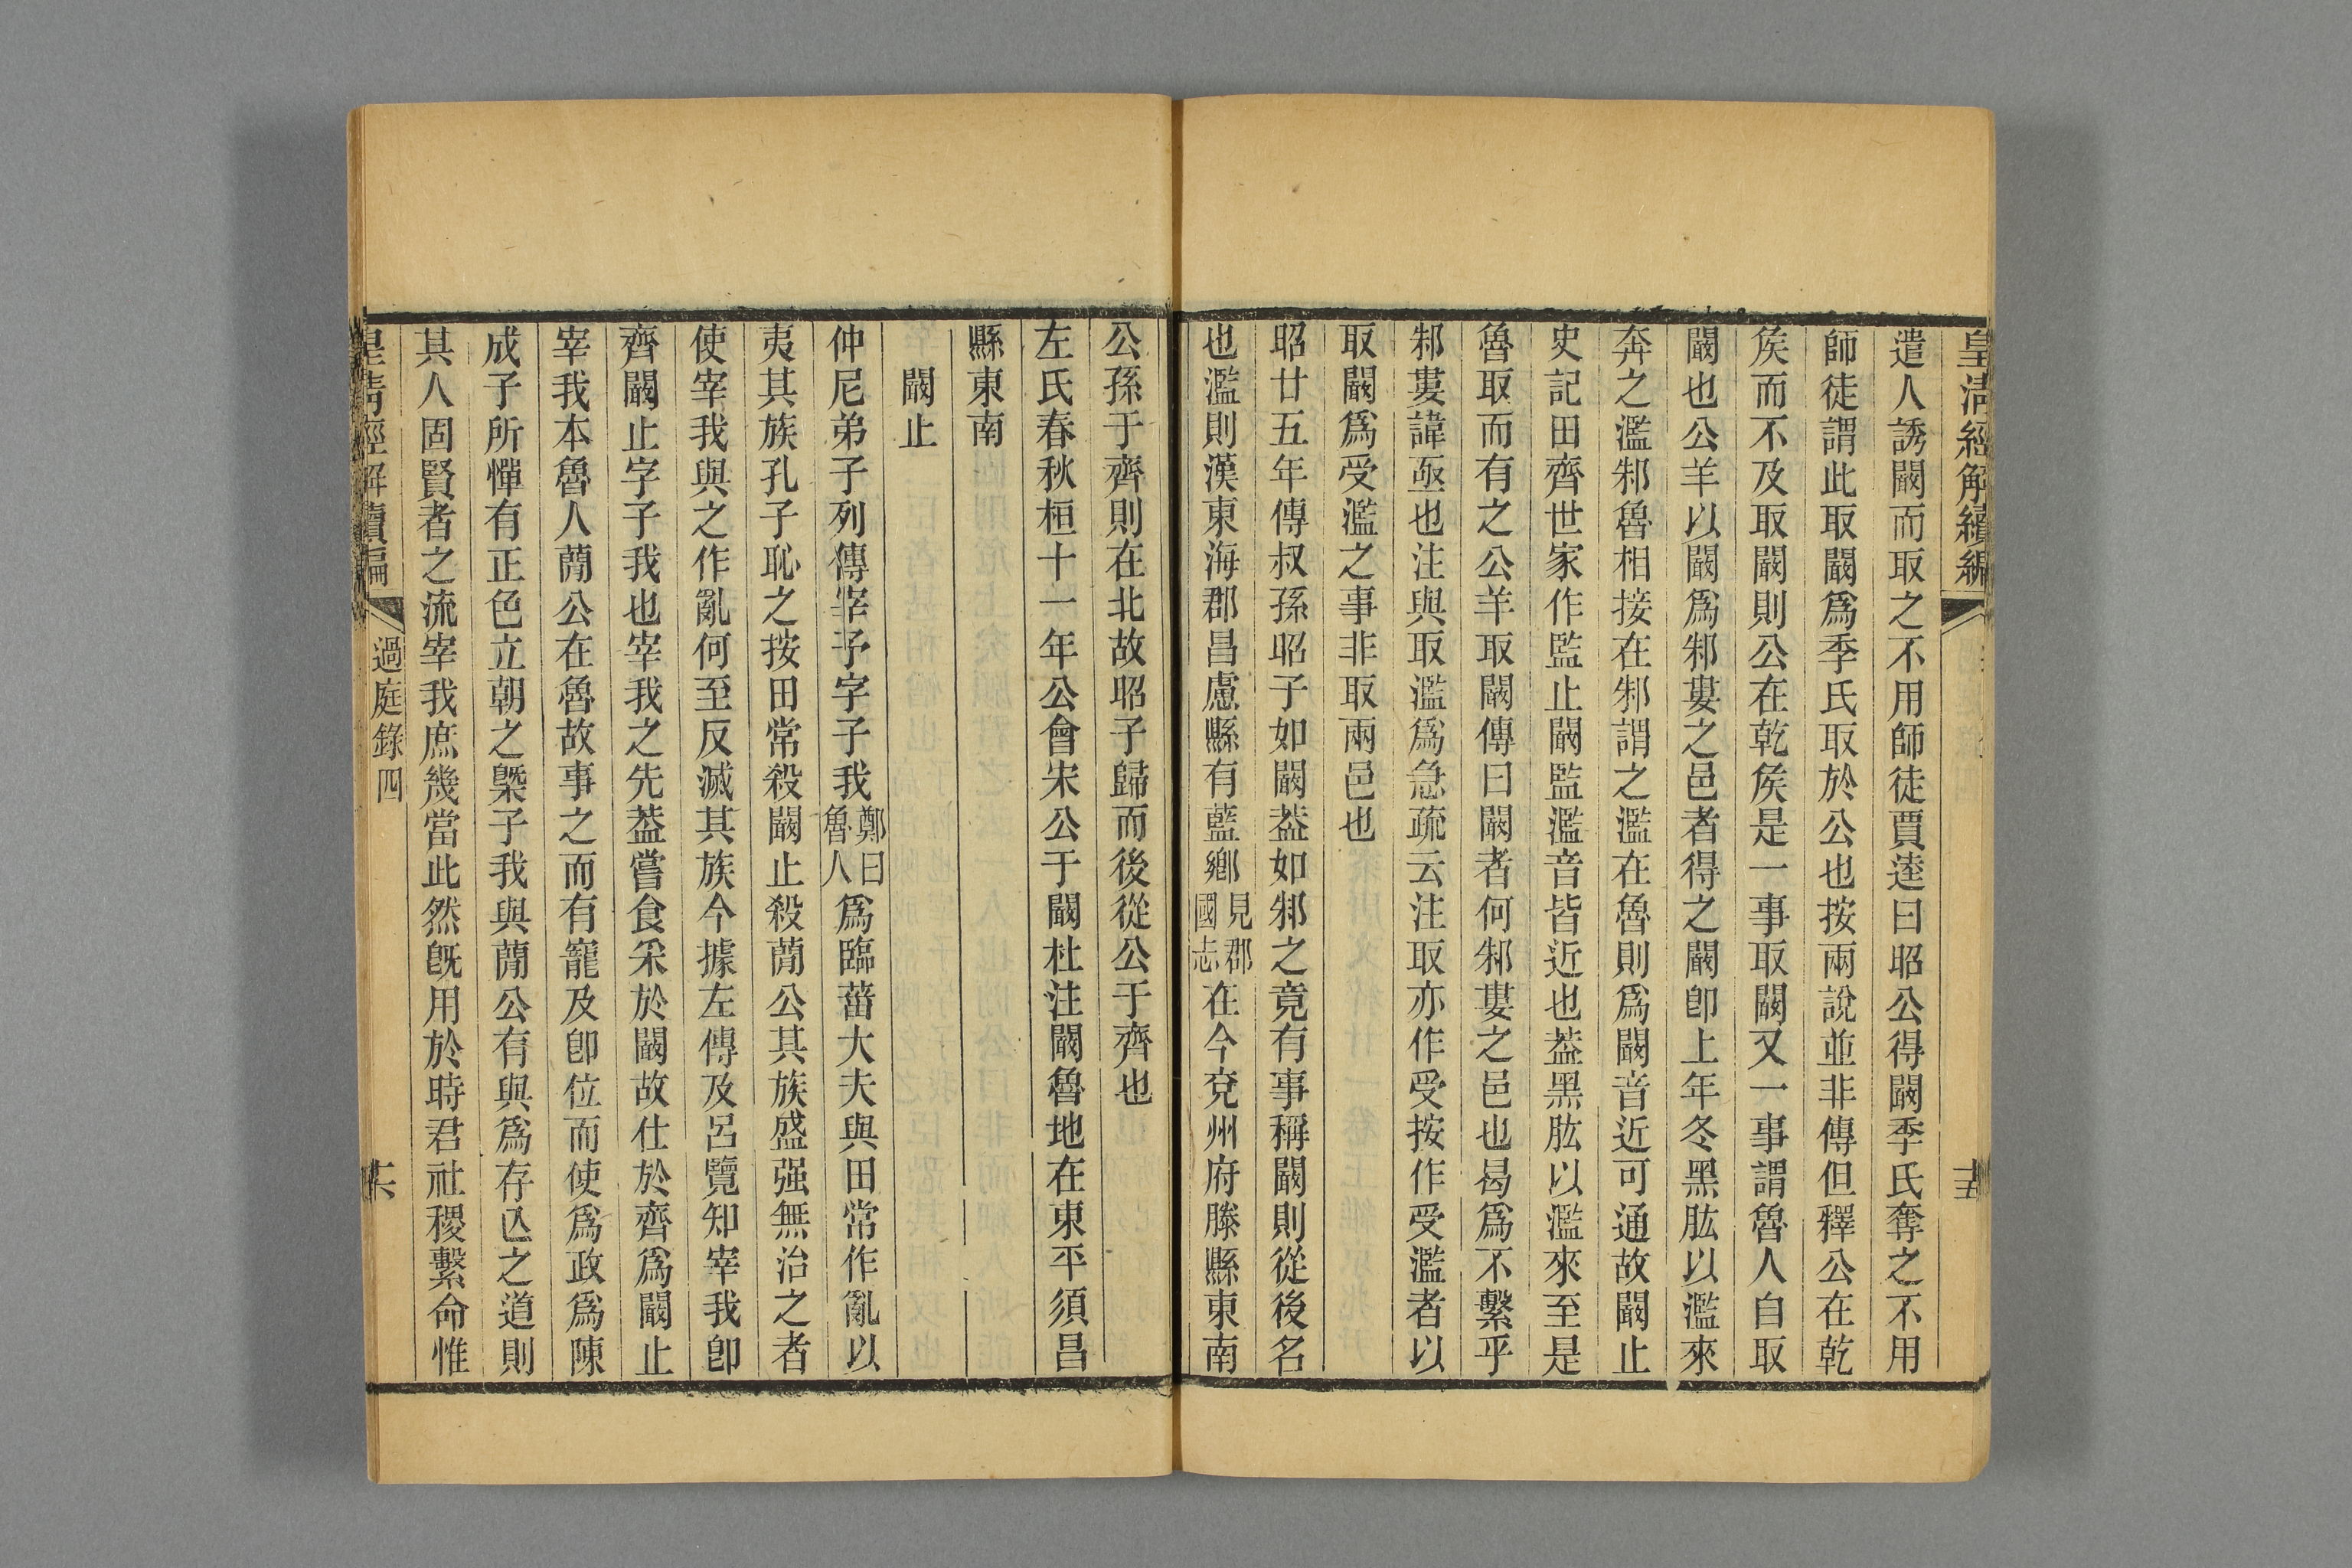 皇清經解續編
十五
遣人誘闞而取之不用師徒賈逵曰昭公得闞季氏奪之不用
師徒謂此取闞爲季氏取於公也按兩說並非傳但釋公在乾
矦而不及取闞則公在乾矦是一事取闞又一事謂魯人自取
闞也公羊以闞爲邾婁之邑者得之闞卽上年冬黑肱以濫來
奔之濫邾魯相接在邾謂之濫在魯則爲闞音近可通故闞止
史記田齊世家作監止闞監濫音皆近也葢黑肱以濫來至是
魯取而有之公羊取闞傳曰闞者何邾婁之邑也曷爲不繫乎
邾婁諱亟也注與取濫爲急疏云注取亦作受按作受濫者以
取闞爲受濫之事非取兩邑也
昭廿五年傳叔孫昭子如闞葢如邾之竟有事稱闞則從後名
也濫則漢東海郡昌慮縣有藍鄉見郡國志在今兗州府滕縣東南
公孫于齊則在北故昭子歸而後從公于齊也
左氏春秋桓十一年公會宋公于闞杜注闞魯地在東平須昌
縣東南
闞止
仲尼弟子列傳宰予字子我鄭曰魯人爲臨菑大夫與田常作亂以
夷其族孔子恥之按田常殺闞止殺蕳公其族盛强無治之者
使宰我與之作亂何至反滅其族今據左傳及呂覽知宰我卽
齊闞止字子我也宰我之先葢嘗食采於闞故仕於齊爲闞止
宰我本魯人蕳公在魯故事之而有寵及卽位而使爲政爲陳
成子所憚有正色立朝之槩子我與蕳公有與爲存亾之道則
其人固賢者之流宰我庶幾當此然旣用於時君社稷繫命惟
皇清經解續編
過庭錄四
十六